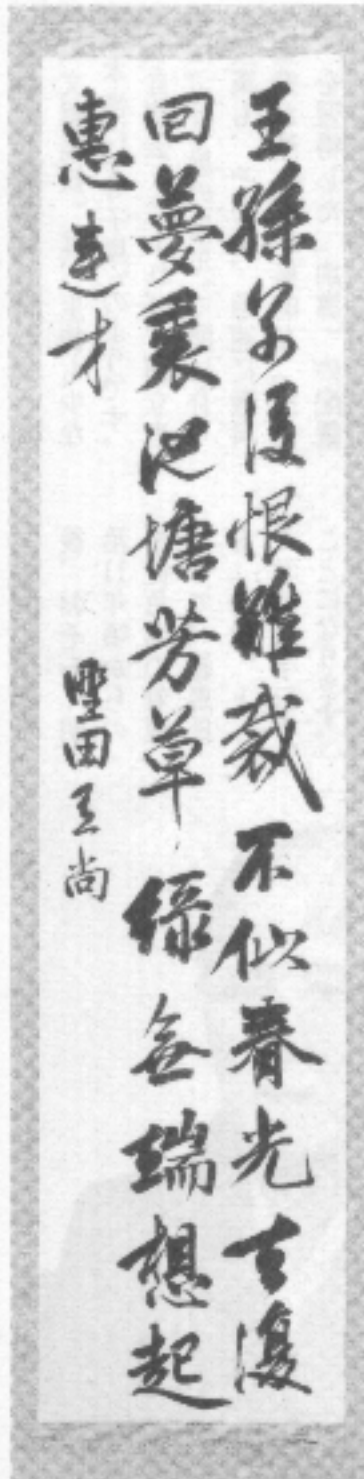 王孫後恨難裁不似春光去復
回夢裏池塘芳草緑無端想起
惠連才
堅田玉尚